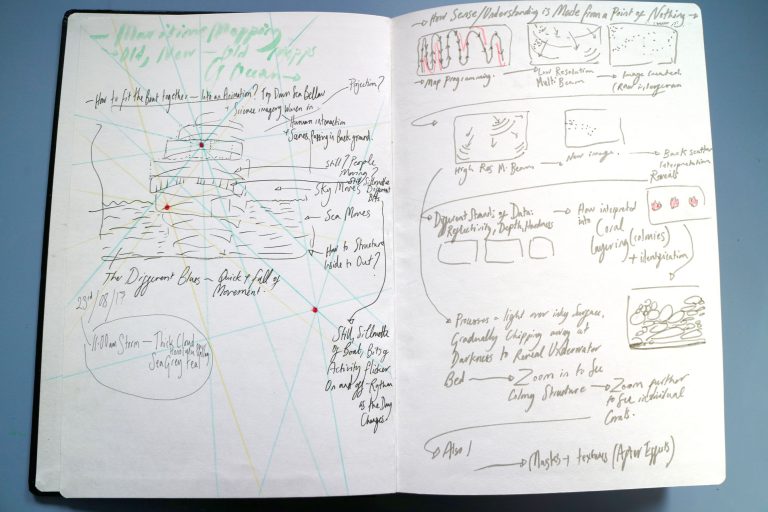 Maritime Mapping
Old, New - Old Mapps
Of Ocean
- How to fit the Boat together - Into an Animation? Top Down Sea Bellow
Projection?
Science imagery Woven in
Human interaction
+ James Potting in Background.
Still? People
Moving?
Still/Sillhouette
Different
Bits
Sky Moves
Sea Moves
How to Structure
Inside to Out?
The Different Blues - Quick + fall of
Movement.
23rd/08/17
11:00am Storm - Thick Cloud
Sea Grey Teal
Still, Sillhoute
of Boat, Bits of
Activity flicker
On and off - Rythm
as the Day
Changes.
- How Sense/Understanding is Made from a Point of Nothing -
Map programming.
Low Resolution
Multi Beam
Image Created.
High Res M. Beam
New image.
Back scatter
Interpretation
Reveals
Different Strands of Data:
Reflectivity, Depth, Hardness
How integrated
into
Coral
Layering (colonies)
+ identification
Processes = light over inky Surface,
Gradually Chipping away at
Darkness to Reveal Underwater
Bed
Zoom in to See
Colony Structure
Zoom further
to See individual
Corals.
Also /
Masks + textures (After Effects)